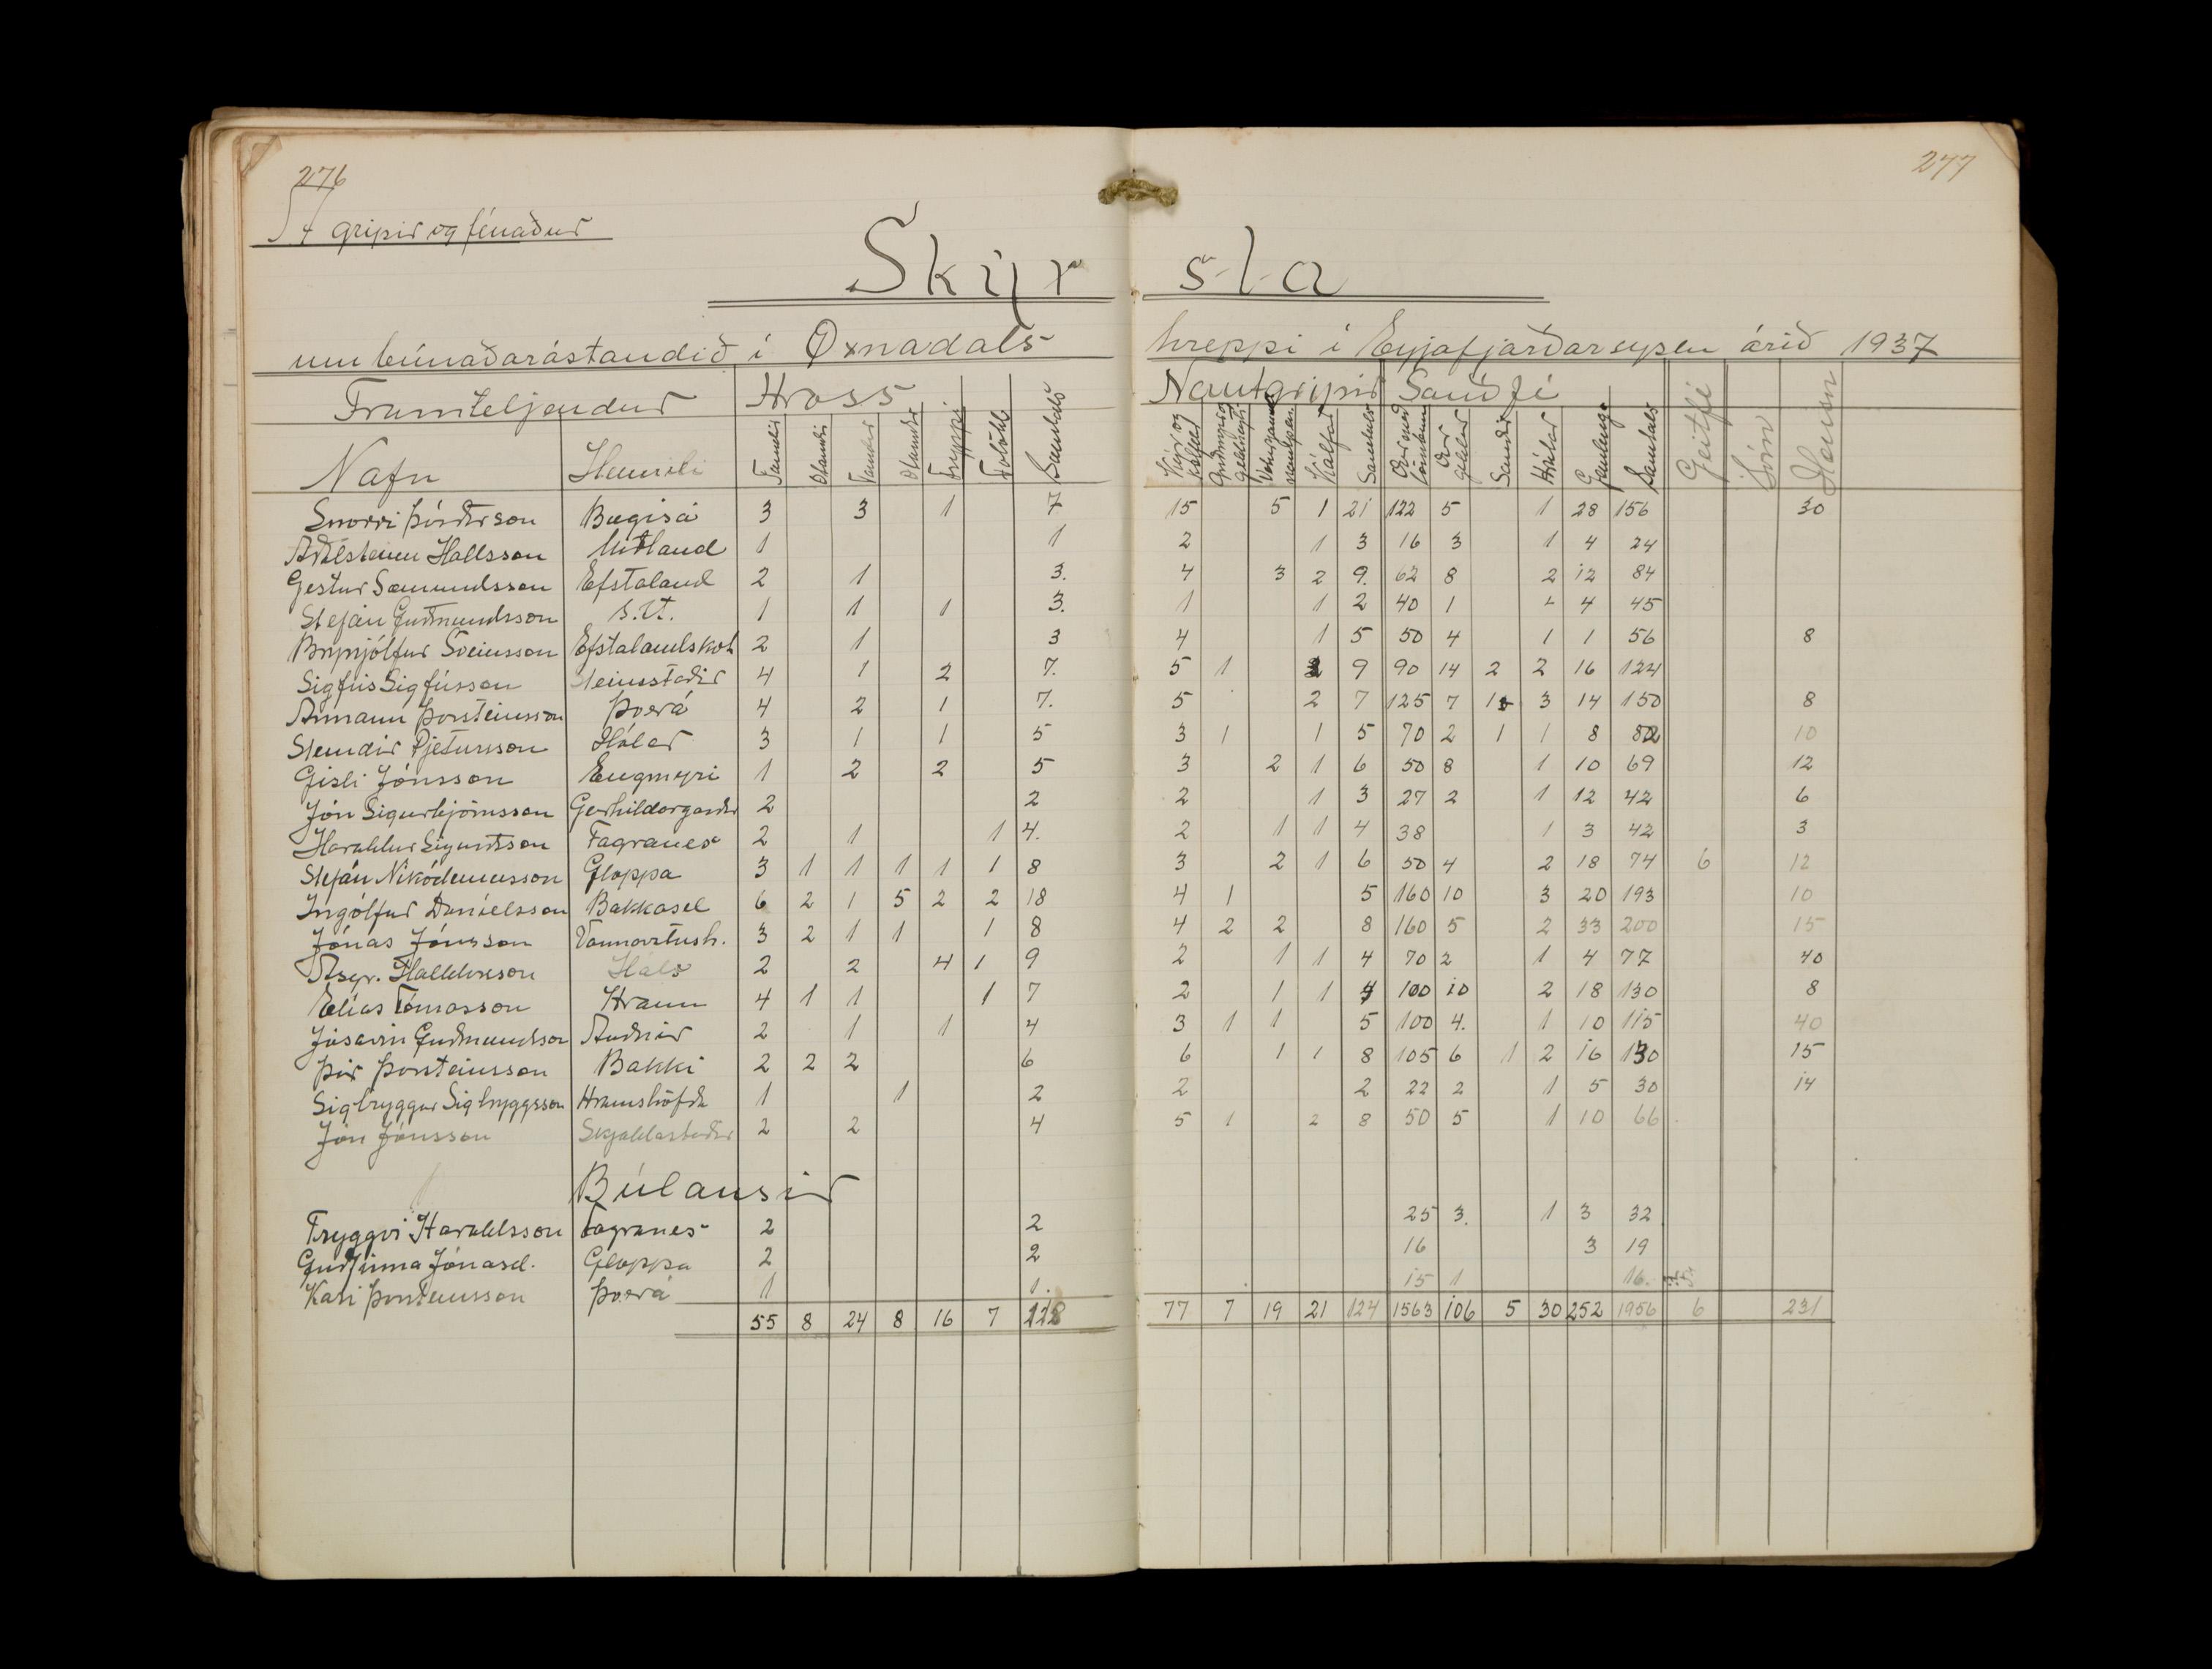 276
277
gripir og fénaður
Skýrsla
um búnaðarástandið í Öxnadals hreppi í Eyjafjarðarsýslu árið 1937
Framteljendur Hross Nautgripir Sauðfé Geitfé Hænsn
Nafn Heimili Tamdir Ótamdir Tamdar Ótamdar Tryppi Folöld Samtals Kýr og kelfdar Griðungar og geldneyti Veturgamall nautpen. Kálfar Samtals Ær með lömbum Ær geldar Sauðir Hrútar Gemlingar Samtals
Snorri Þórðarson Bægisá 3 3 1 7 15 5 1 21 122 5 1 28 156 30
Aðalsteinn Hallsson Miðland 1 1 2 1 3 16 3 1 4 24
Gestur Sæmundsson Efstaland 2 1 3. 4 3 2 9. 62 8 2 12 84
Stefán Guðmundsson s.st. 1 1 1 3. 1 1 2 40 1 - 4 45
Brynjólfur Sveinsson Efstalandskot 2 1 3 4 1 5 50 4 1 1 56 8
Sigfús Sigfússon Steinsstaðir 4 1 2 7. 5 1 9 90 14 2 2 16 124
Ármann Þorsteinsson Þverá 4 2 1 7. 5 2 7 125 7 1 3 14 150 8
Steindór Pjetursson Hólar 3 1 1 5 3 1 1 5 70 2 1 1 8 82 10
Gísli Jónsson Engimýri 1 2 2 5 3 2 1 6 50 8 1 10 69 12
Jón Sigurbjörnsson Geirhildargarðar 2 2 2 1 3 27 2 1 12 42 6
Haraldur Sigurðsson Fagranes 2 1 1 4. 2 1 1 4 38 1 3 42 3
Stefán Nikódemusson Gloppa 3 1 1 1 1 1 8 3 2 1 6 50 4 2 18 74 6 12
Ingólfur Daníelsson Bakkasel 6 2 1 5 2 2 18 4 1 5 160 10 3 20 193 10
Jónas Jónsson 3 2 1 1 1 8 4 2 2 8 160 5 2 33 200 15
Ásgr. Halldórsson Háls 2 2 4 1 9 2 1 1 4 70 2 1 4 77 40
Elías Tómasson Hraun 4 1 1 1 7 2 1 1 4 100 10 2 18 130 8
Jósavin Guðmundsson Auðnir 2 1 1 4 3 1 1 5 100 4. 1 10 115 40
Þór Þorsteinsson Bakki 2 2 2 6 6 1 1 8 105 6 1 2 16 130 15
Sigtryggur Sigtryggsson Hraunshöfða 1 1 2 2 2 22 2 1 5 30 14
Jón Jónsson Skjaldastaðir 2 2 4 5 1 2 8 50 5 1 10 66
Búlausir
Tryggvi Haraldsson Fagranes 2 2 25 3. 1 3 32
Guðfinna Jónasd. Gloppa 2 2 16 3 19
Kári Þorsteinsson Þverá 1 1. 15 1 16.
55 8 24 8 16 7 118 77 7 19 21 124 1563 106 5 30 252 1956 6 231